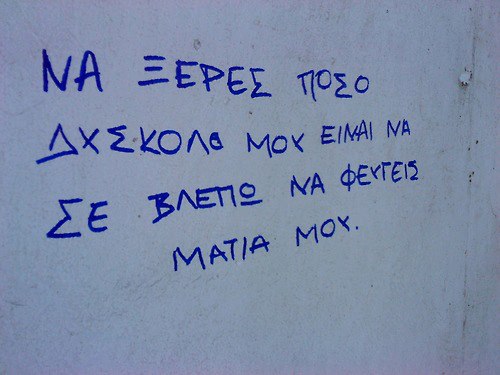 ΝΑ ΞΕΡΕΣ ΠΟΣΟ
ΔΥΣΚΟΛΟ ΜΟΥ ΕΙΝΑΙ ΝΑ
ΣΕ ΒΛΕΠΩ ΝΑ ΦΕΥΓΕΙΣ
ΜΑΤΙΑ ΜΟΥ.